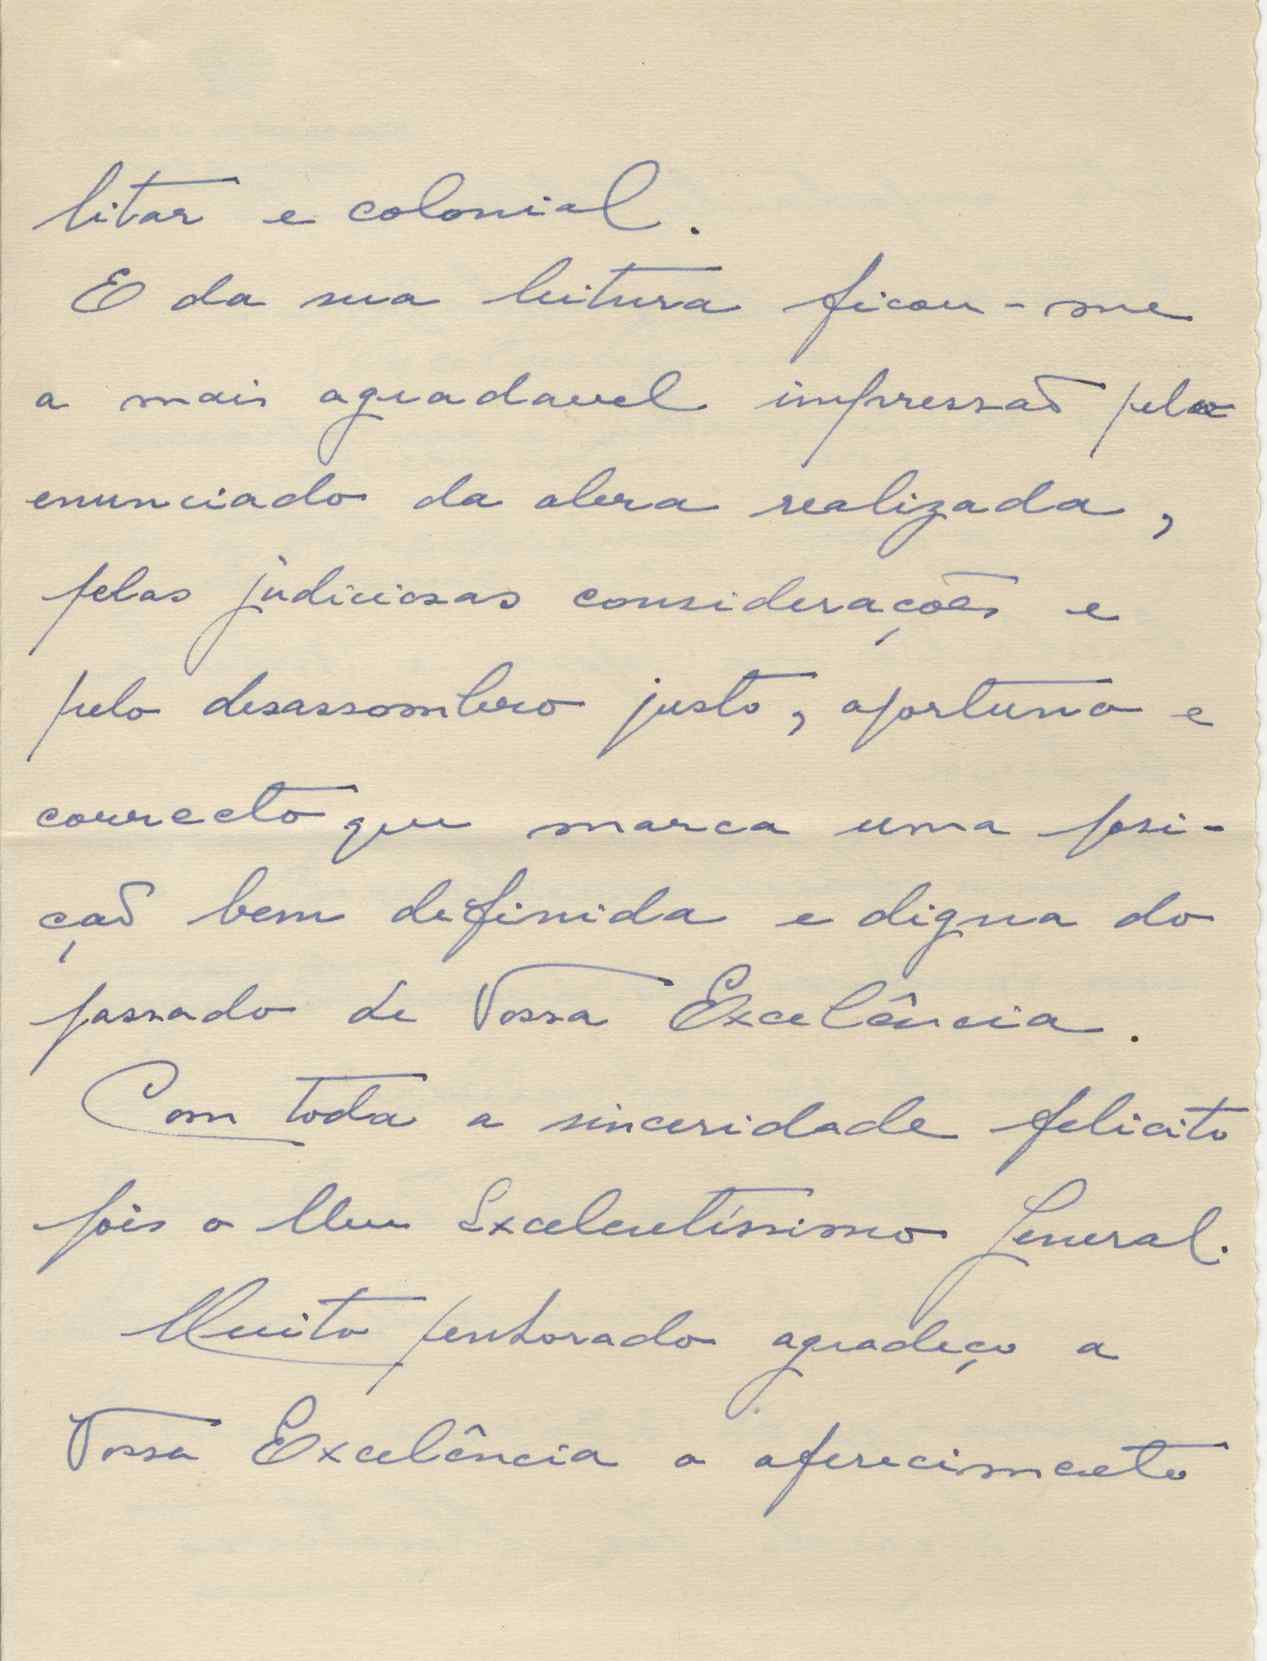 litar e colonial.
E da sua leitura ficou-me
a mais agradavel impressão pelo
enunciado da obra realizada,
pelas judiciosas considerações e
pelo desassombro justo, oportuno e
correcto que marca uma posi-
ção bem definida e digna do
passado de Vossa Excelência.
Com toda a sinceridade felicito
pois o Meu Excelentíssimo General.
Muito penhorado agradeço a
Vossa Excelência o oferecimento